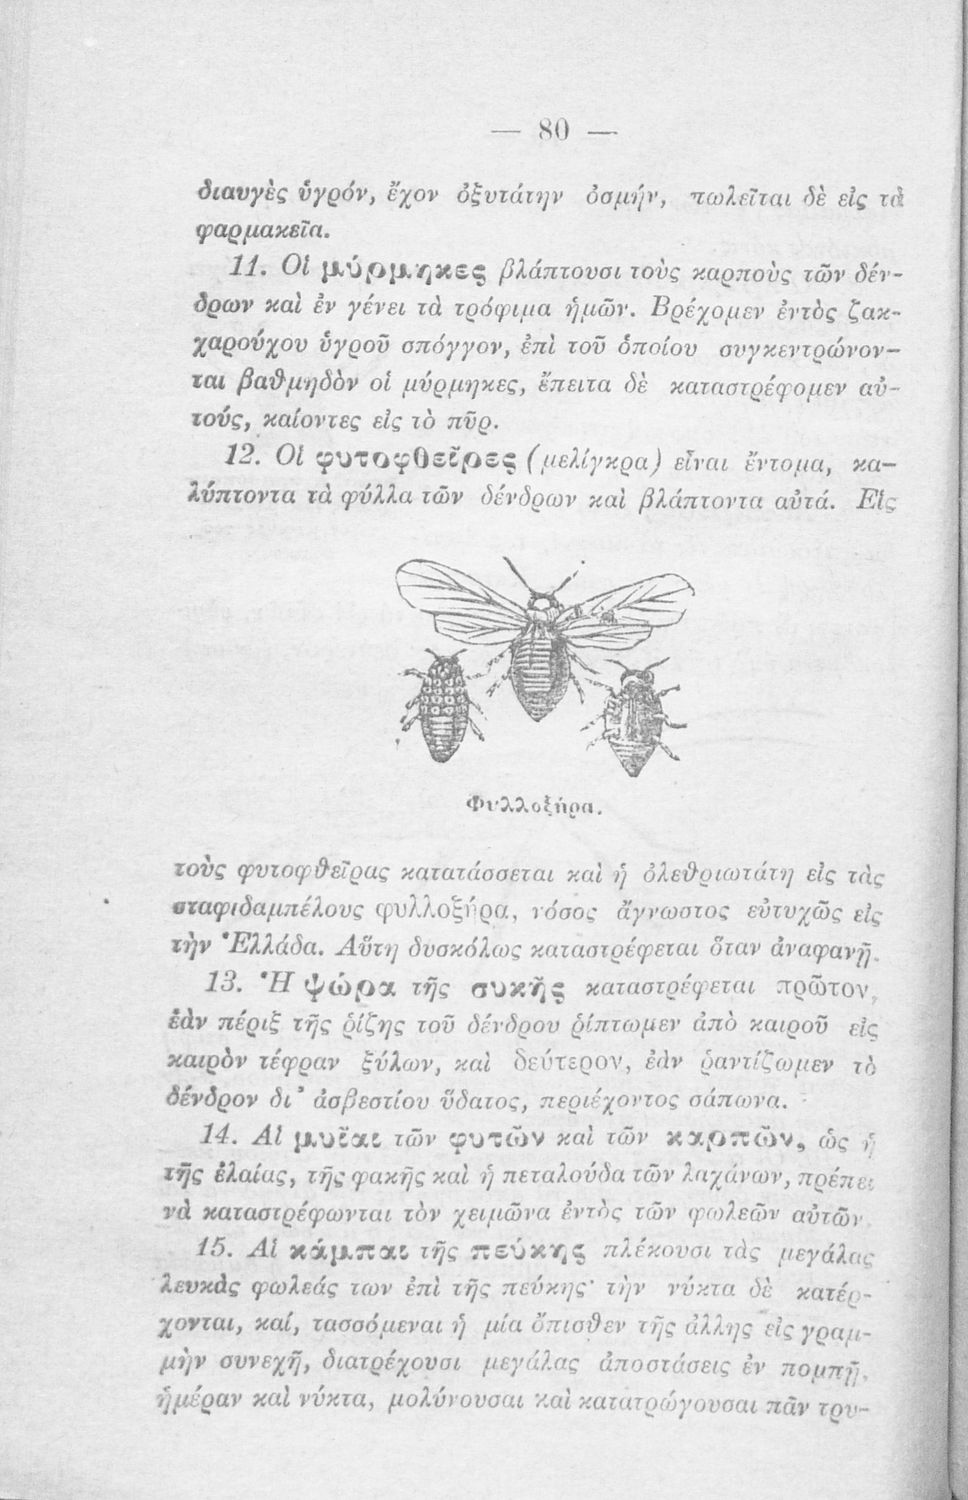 — 80 —
διαυγὲς ὑγρόν, ἔχον ὀξυτάτην ὀσμήν, πωλεῖται δὲ εἰς τὰ
φαρμακεῖα.
11. Οἱ μύρμηκες βλάπτουσι τοὺς καρποὺς τῶν δέν-
δρων καὶ ἐν γένει τὰ τρόφιμα ἡμῶν. Βρέχομεν ἐντὸς ζακ-
χαρούχου ὑγροῦ σπόγγον, ἐπὶ τοῦ ὁποίου συγκεντρώνον-
ται βαθμηδὸν οἱ μύρμηκες, ἔπειτα δὲ καταστρέφομεν αὐ-
τούς, καίοντες εἰς τὸ πῦρ.
12. Οἱ φυτοφθεῖρες (μελίγκρα) εἶναι ἔντομα, κα-
λύπτοντα τὰ φύλλα τῶν δένδρων καὶ βλάπτοντα αὐτά. Εἰς
Φυλλοξήρα.
τοὺς φυτοφθεῖρας κατατάσσεται καὶ ἡ ὀλεθριωτάτη εἰς τὰς
σταφιδαμπέλους φυλλοξήρα, νόσος ἄγνωστος εὐτυχῶς εἰς
τὴν Ἑλλάδα. Αὕτη δυσκόλως καταστρέφεται ὅταν ἀναφανῇ.
13. Ἡ ψώρα τῆς συκῆς καταστρέφεται πρῶτον,
ἐὰν πέριξ τῆς ῥίζης τοῦ δένδρου ῥίπτωμεν ἀπὸ καιροῦ εἰς
καιρὸν τέφραν ξύλων, καὶ δεύτερον, ἐὰν ῥαντίζωμεν τὸ
δένδρον δι' ἀσβεστίου ὕδατος, περιέχοντος σάπωνα.
14. Αἱ μυῖαι τῶν φυτῶν καὶ τῶν καρπῶν, ὡς ἡ
τῆς ἐλαίας, τῆς φακῆς καὶ ἡ πεταλούδα τῶν λαχάνων, πρέπει
νὰ καταστρέφωνται τὸν χειμῶνα ἐντὸς τῶν φωλεῶν αὐτῶν
15. Αἱ κάμπαι τῆς πεύκης πλέκουσι τὰς μεγάλας
λευκὰς φωλεάς των ἐπὶ τῆς πεύκης· τὴν νύκτα δὲ κατέρ-
χονται, καί, τασσόμεναι ἡ μία ὄπισθεν τῆς ἄλλης εἰς γραμ-
μὴν συνεχῆ, διατρέχουσι μεγάλας ἀποστάσεις ἐν πομπῇ,
ἡμέραν καὶ νύκτα, μολύνουσαι καὶ κατατρώγουσαι πᾶν τρυ-